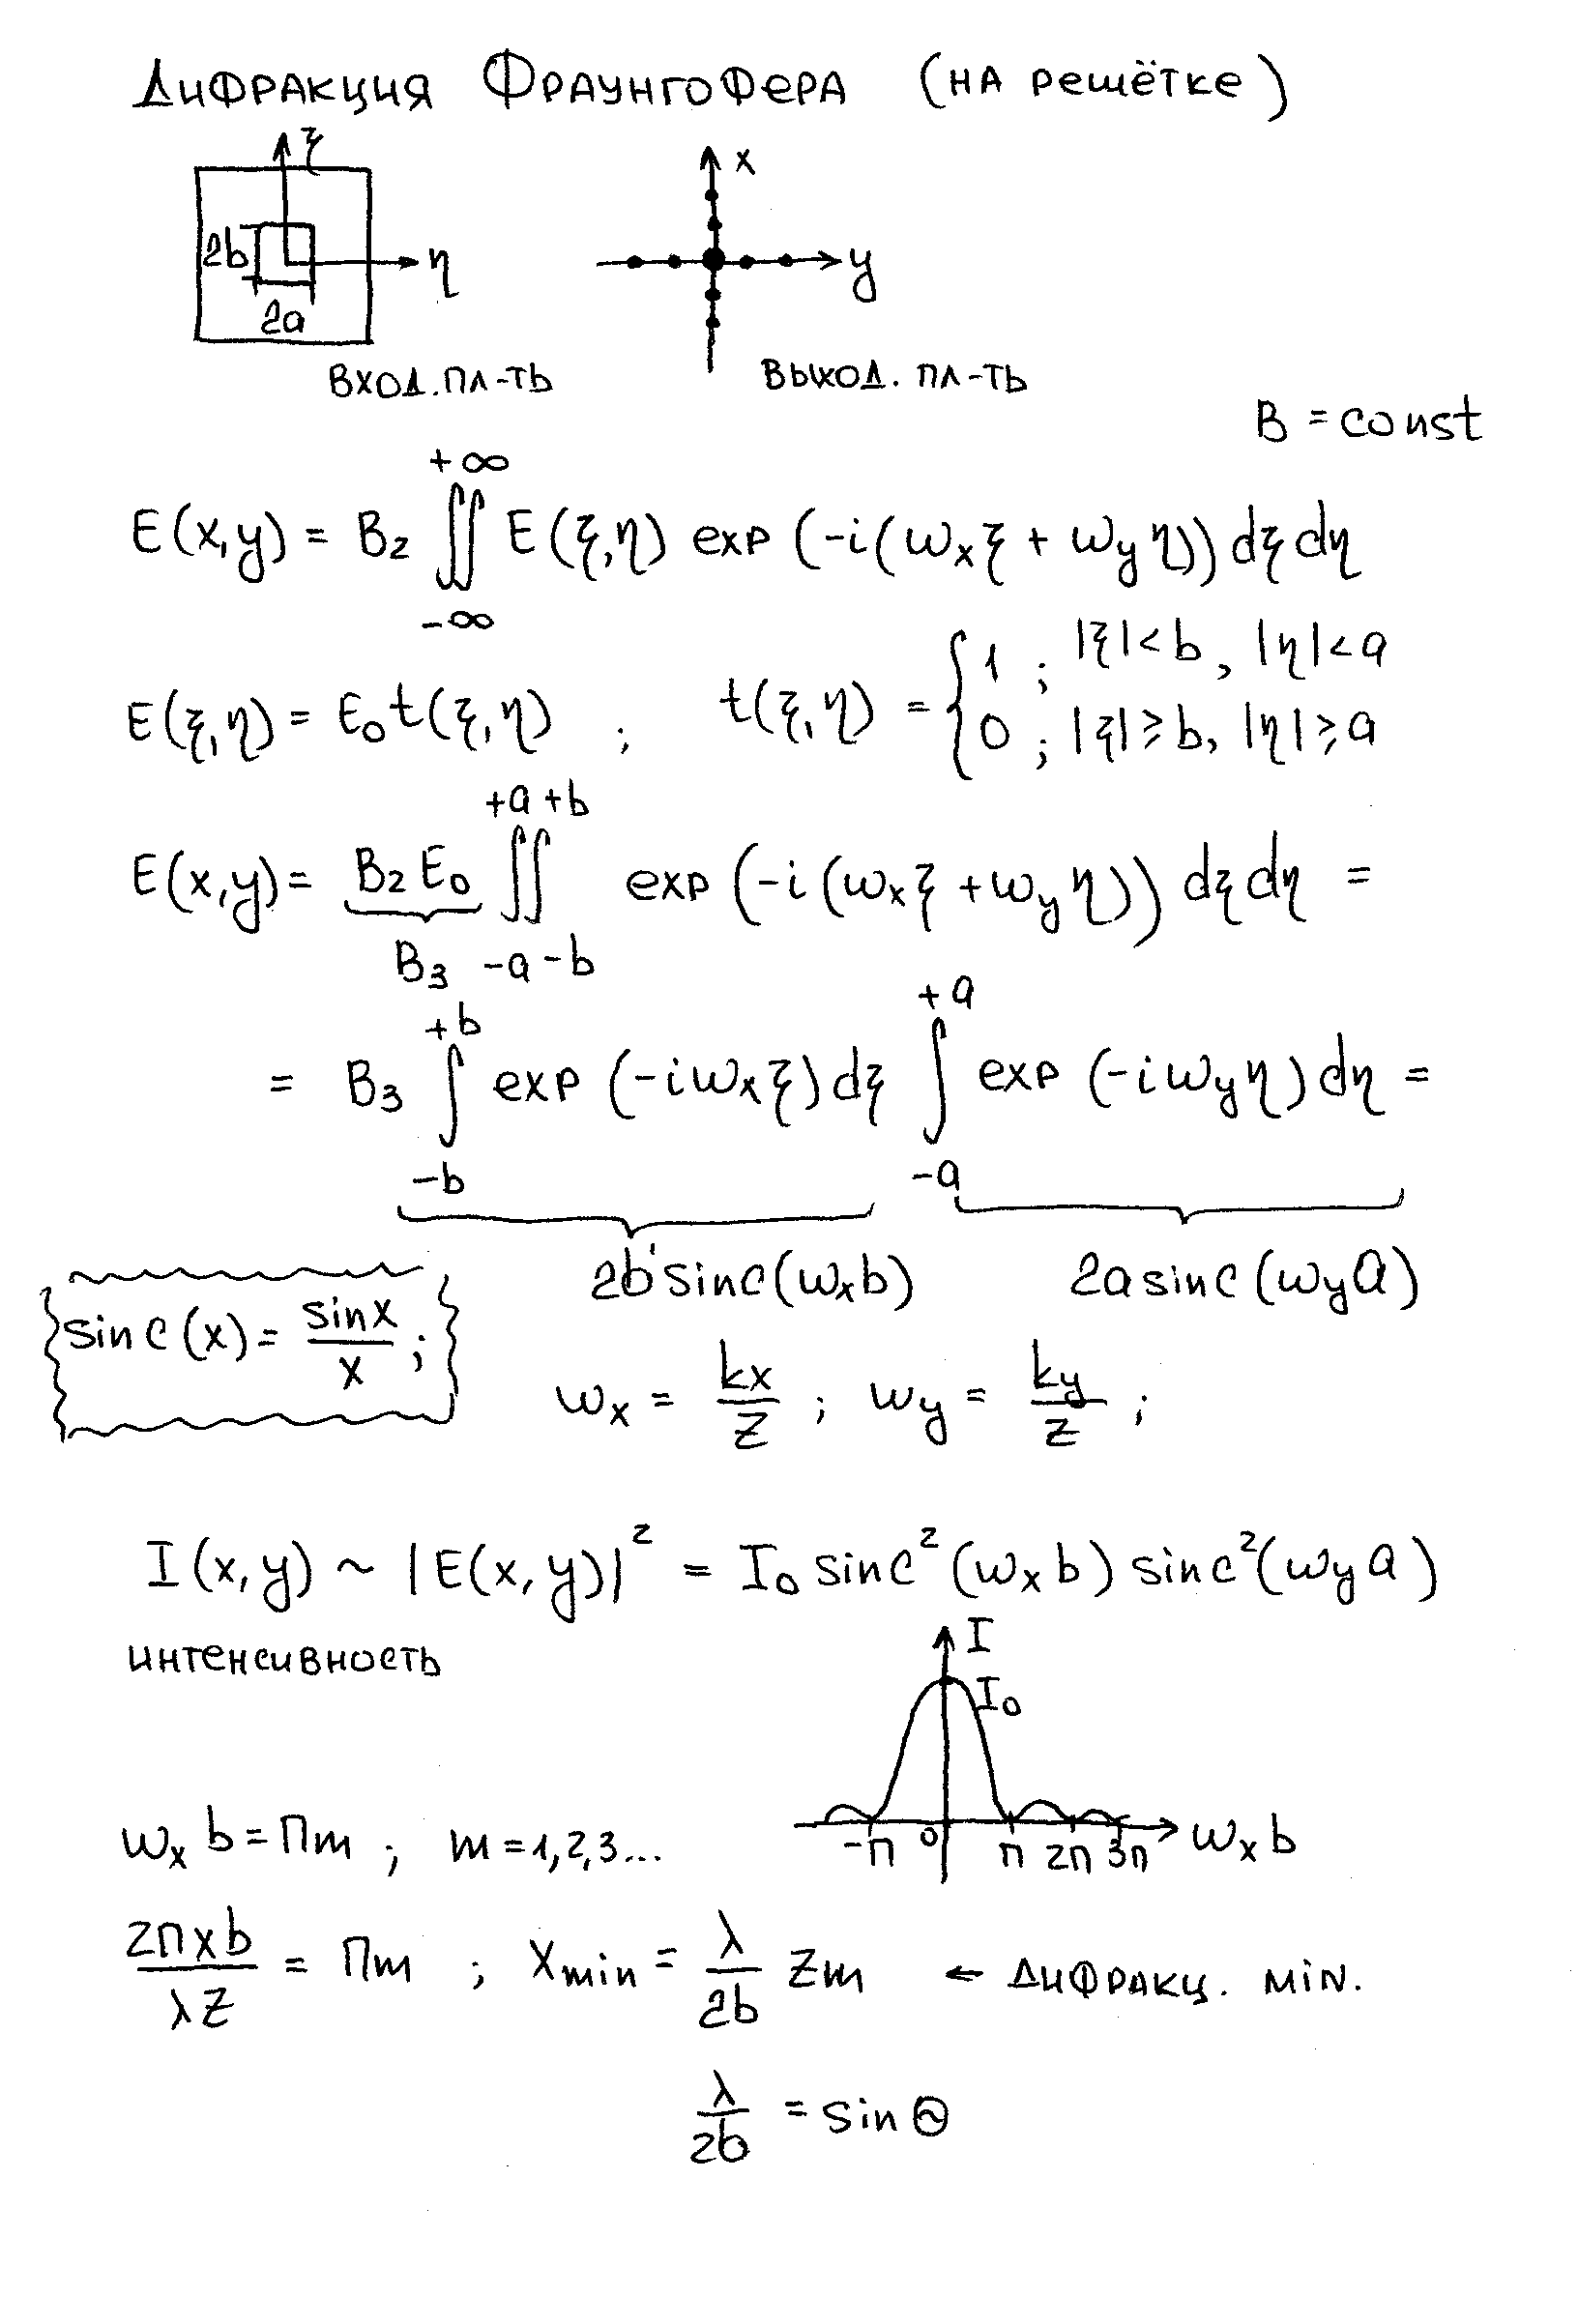 Дифракция Фраунгофера (на решётке)
ξ
x
2b
η
y
2a
вход. пл-ть
выход. пл-ть
B = const
E(x,y) = B₂ ∬₋∞⁺∞ E(ξ,η) exp (-i(ωₓξ + ω_y η)) dξ dη
E(ξ,η) = E₀ t(ξ,η) ; t(ξ,η) = { 1 ; |ξ| < b, |η| < a
0 ; |ξ| ≥ b, |η| ≥ a
E(x,y) = B₂ E₀ ∬ exp (-i (ωₓξ + ω_y η)) dξ dη =
+a +b
B₃ -a -b
= B₃ ∫₋b⁺b exp (-iωₓξ) dξ ∫₋a⁺a exp (-iω_y η) dη =
2b sinc(ωₓb) 2a sinc (ω_y a)
sinc (x) = sinx/x ;
ωₓ = kx/z ; ω_y = ky/z ;
I(x,y) ~ |E(x,y)|² = I₀ sinc² (ωₓ b) sinc² (ω_y a)
интенсивность
I
I₀
-π 0 π 2π 3π ωₓ b
ωₓ b = πm ; m = 1,2,3...
2πxb/λz = πm ; x_min = λ/2b zm ← дифракц. min.
λ/2b = sin Θ